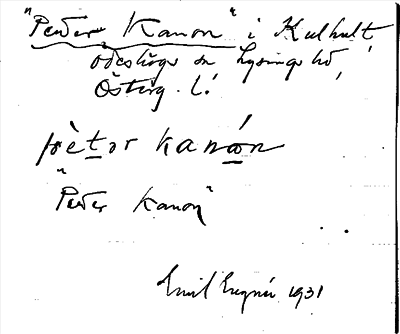 "Peder Kanon" i Kulhult
Ödeshögs sn Lysings hd,
Österg. L.
pètor kanón
"Peder Kanon"
Emil Engnér 1931